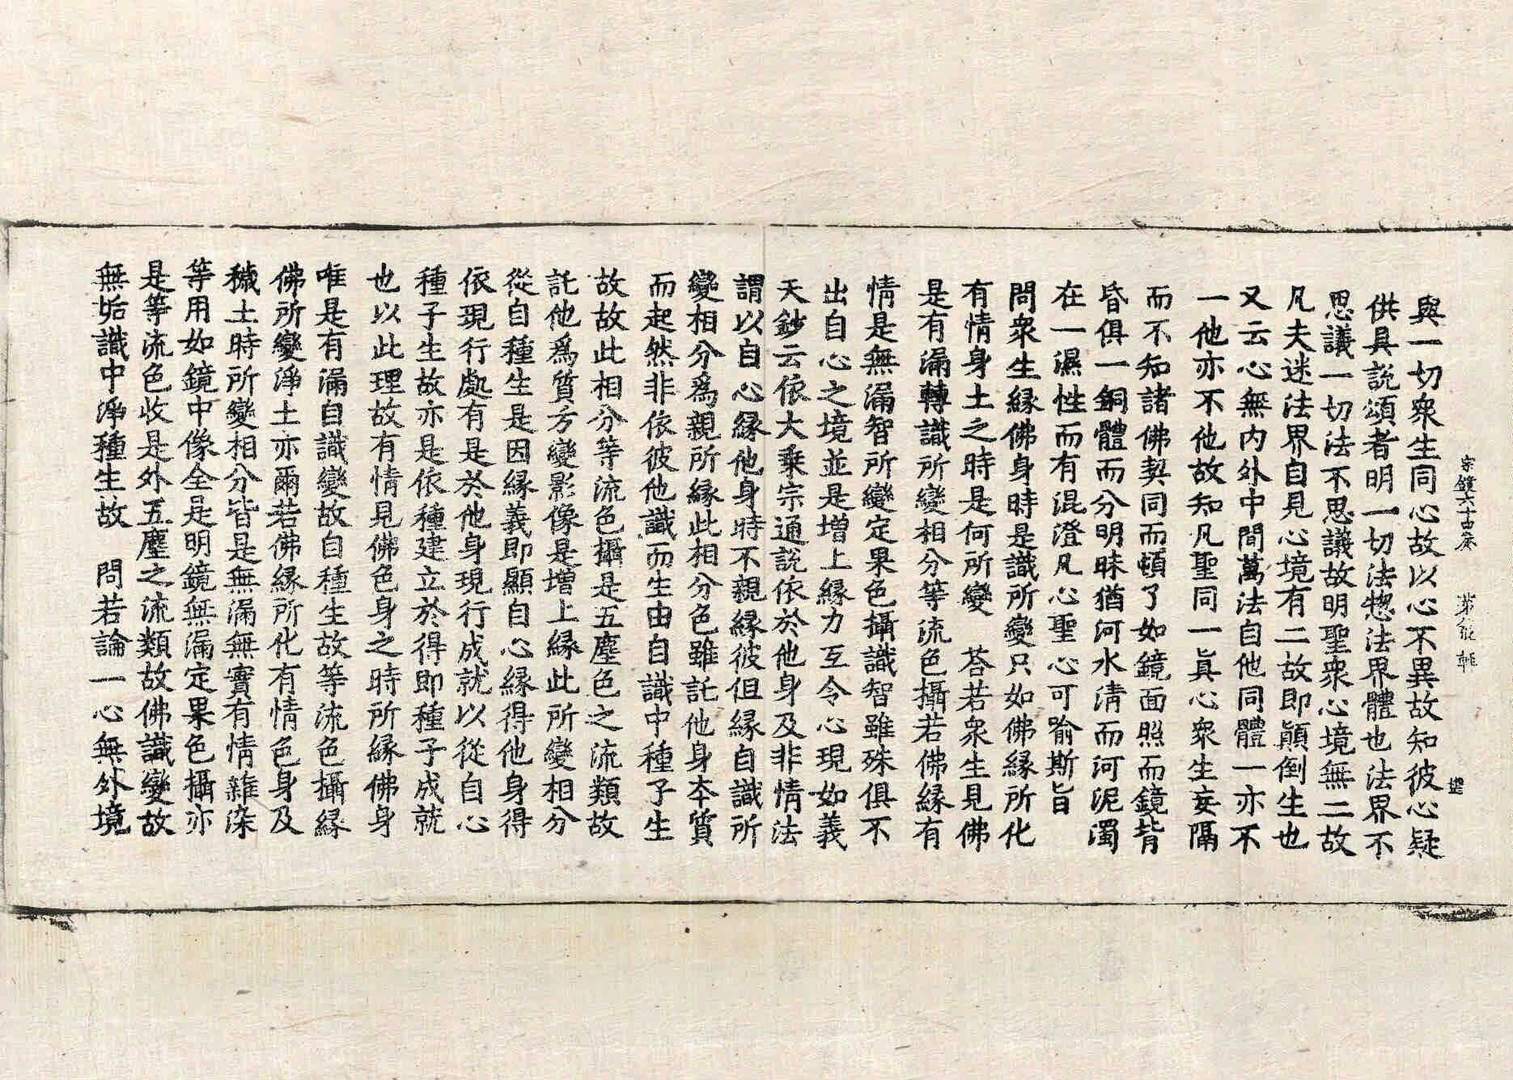 宗鏡六十 卷 第 張
與一切衆生同心故以心不異故知彼心疑
供具說頌者明一切法惣法界體也法界不
思議一切法不思議故明聖衆心境無二故
凡夫迷法界自見心境有二故即顚倒生也
又云心無内外中間萬法自他同體一亦不
一他亦不他故知凡聖同一眞心衆生妄隔
而不知諸佛契同而頓了如鏡面照而鏡背
昏俱一銅體而分明昧猶河水清而河泥濁
在一濕性而有混澄凡心聖心可喻斯旨
問衆生縁佛身時是識所變只如佛縁所化
有情身土之時是何所變　荅若衆生見佛
是有漏轉識所變相分等流色攝若佛縁有
情是無漏智所變定果色攝識智雖殊俱不
出自心之境並是増上縁力互令心現如義
天鈔云依大乗宗通說依於他身及非情法
謂以自心縁他身時不親縁彼但縁自識所
變相分爲親所縁此相分色雖託他身本質
而起然非依彼他識而生由自識中種子生
故故此相分等流色攝是五塵色之流類故
託他爲質方變影像是増上縁此所變相分
從自種生是因縁義即顯自心縁得他身得
依現行處有是於他身現行成就以從自心
種子生故亦是依種建立於得即種子成就
也以此理故有情見佛色身之時所縁佛身
唯是有漏自識變故自種生故等流色攝縁
佛所變淨土亦爾若佛縁所化有情色身及
穢土時所變相分皆是無漏無實有情雜染
等用如鏡中像全是明鏡無漏定果色攝亦
是等流色收是外五塵之流類故佛識變故
無垢識中淨種生故　問若論一心無外境